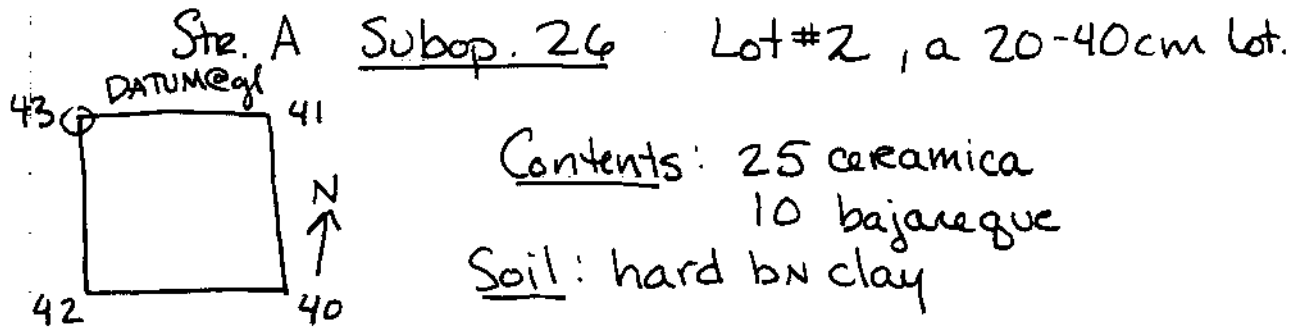 Str. A Subop. 26 Lot #2, a 20-40cm lot.
DATUM@gl
43 41
Contents: 25 ceramica
N
10 bajareque
Soil: hard bN clay
42 40